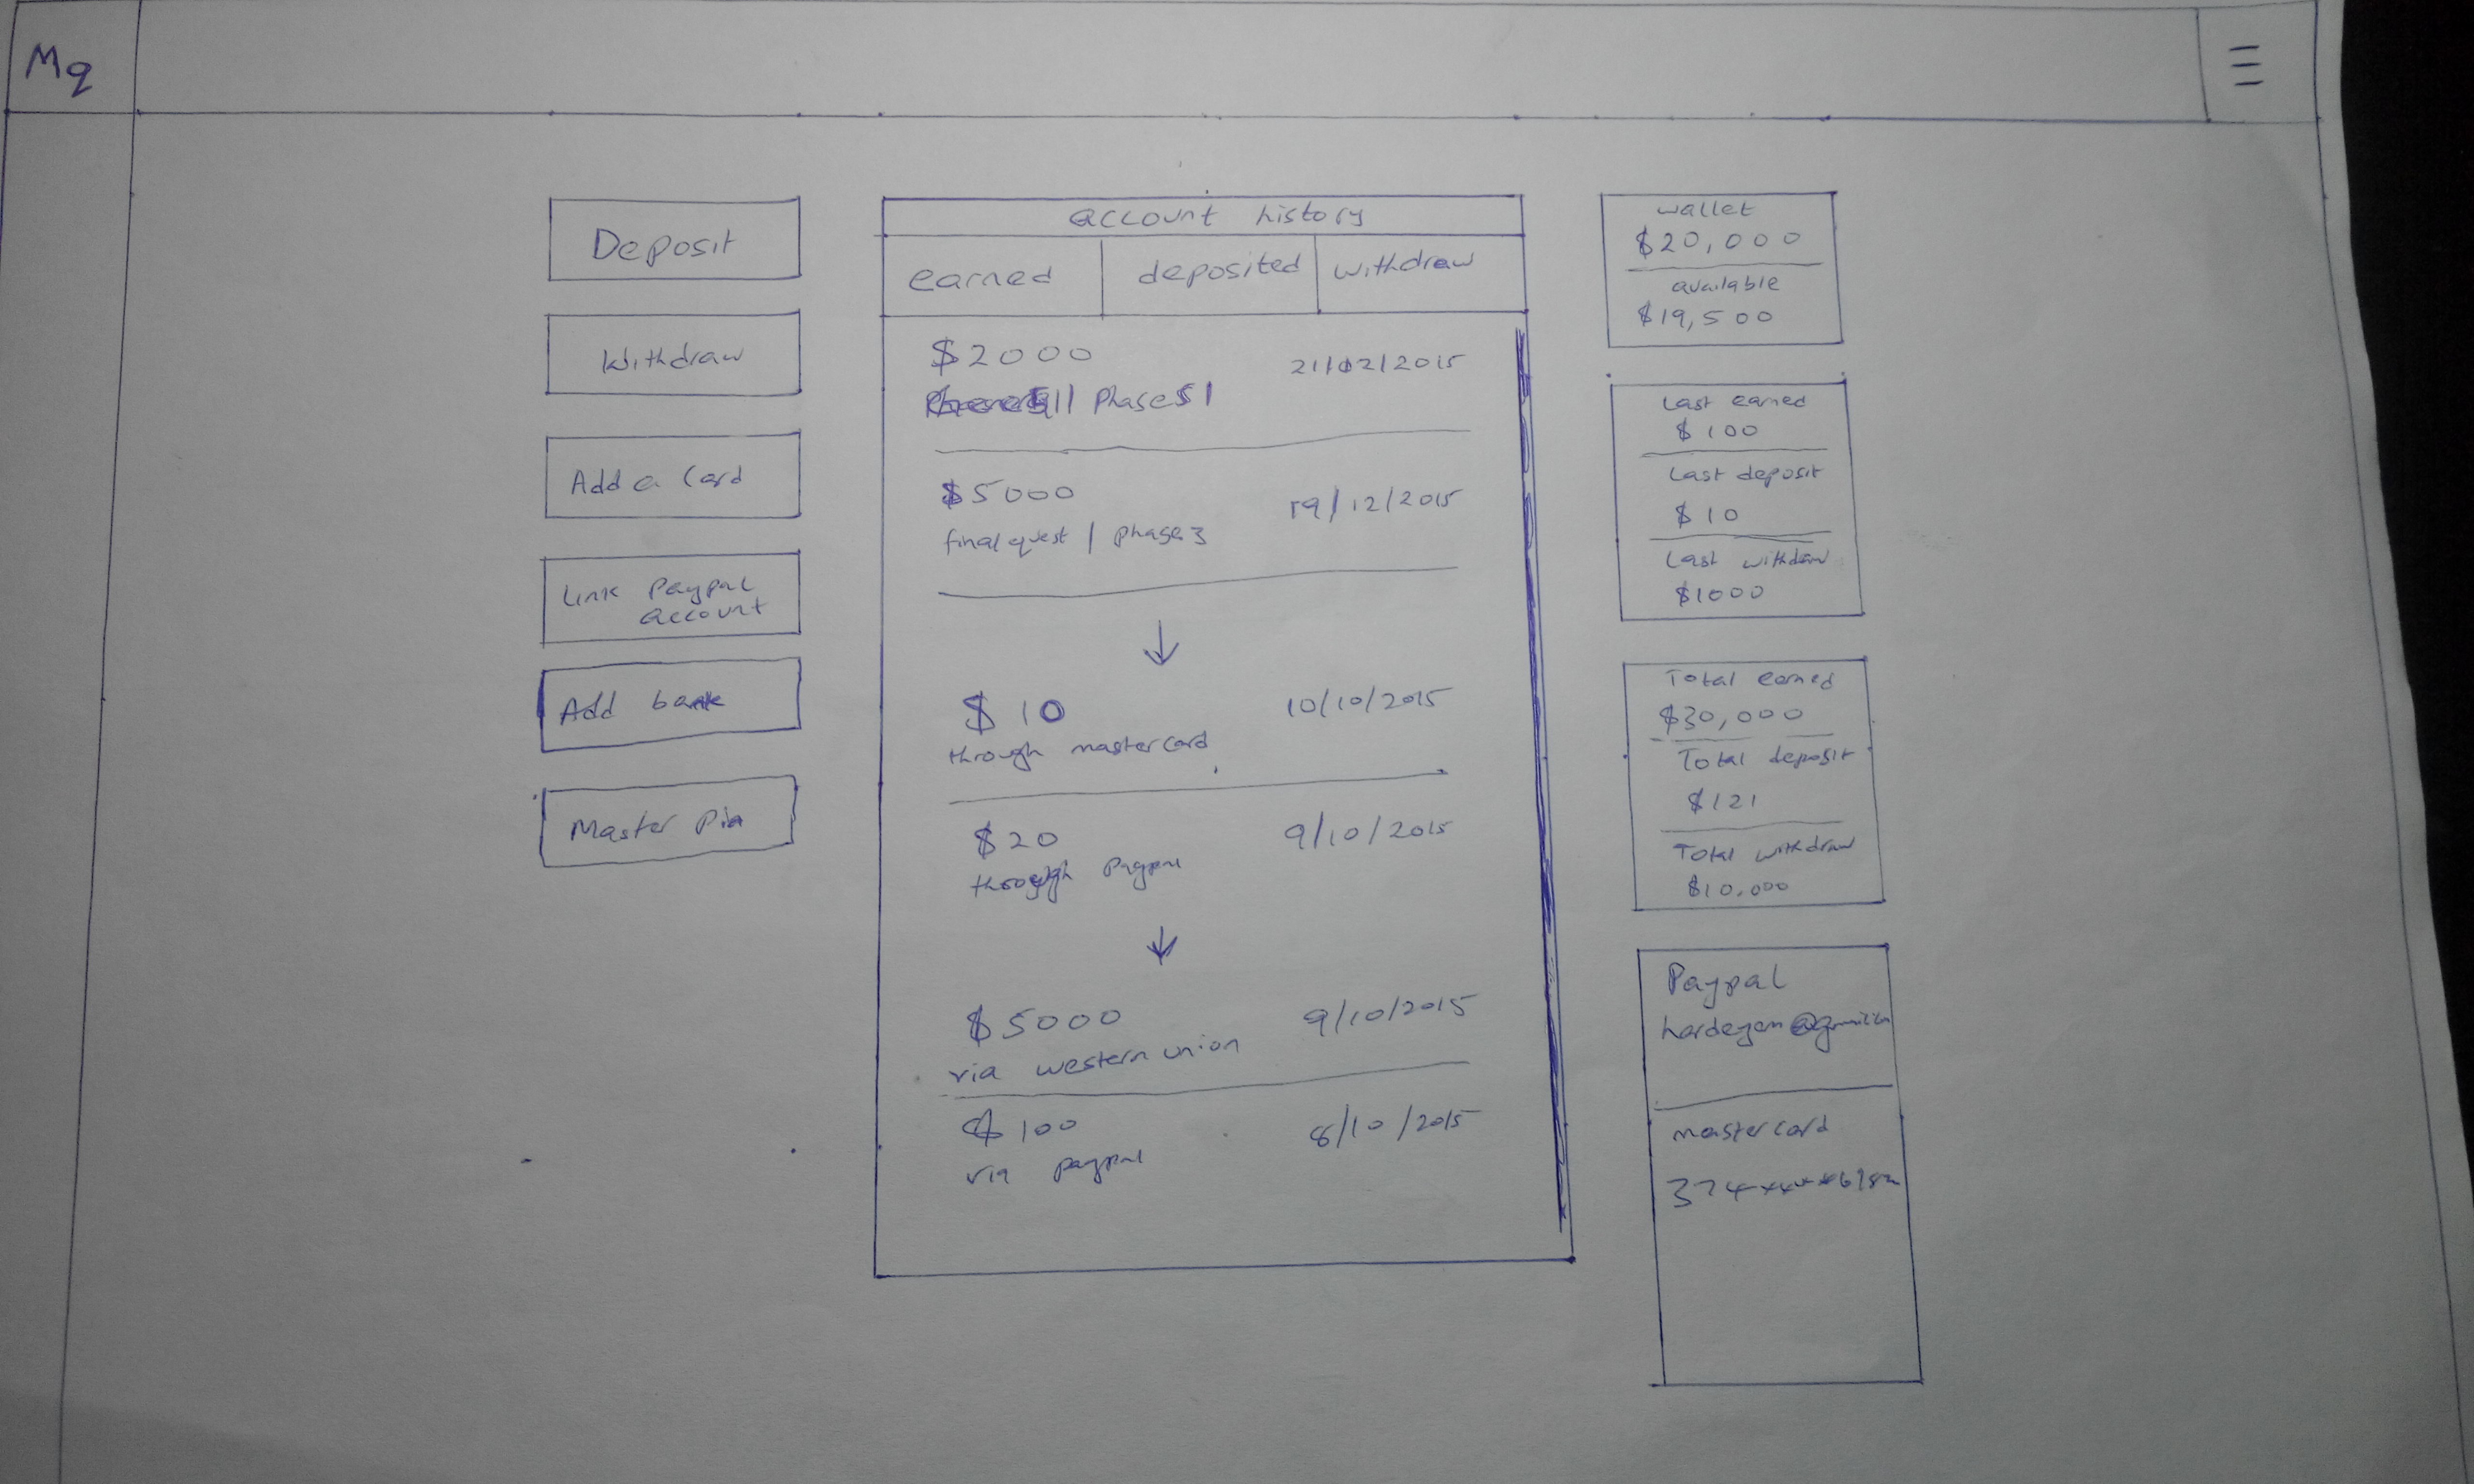 Mq
Deposit
Withdraw
Add a Card
Link Paypal
account
Add bank
Master Pin
account history
earned
deposited
withdraw
$2000
21/02/2015
Phases1
$5000
19/12/2015
final quest / phase 3
$10
10/10/2015
through mastercard
$20
9/10/2015
through Paypal
$5000
9/10/2015
via western union
$100
8/10/2015
via paypal
wallet
$20,000
available
$19,500
Last earned
$100
Last deposit
$10
Last withdraw
$1000
Total earned
$30,000
Total deposit
$121
Total withdraw
$10,000
Paypal
mastercard